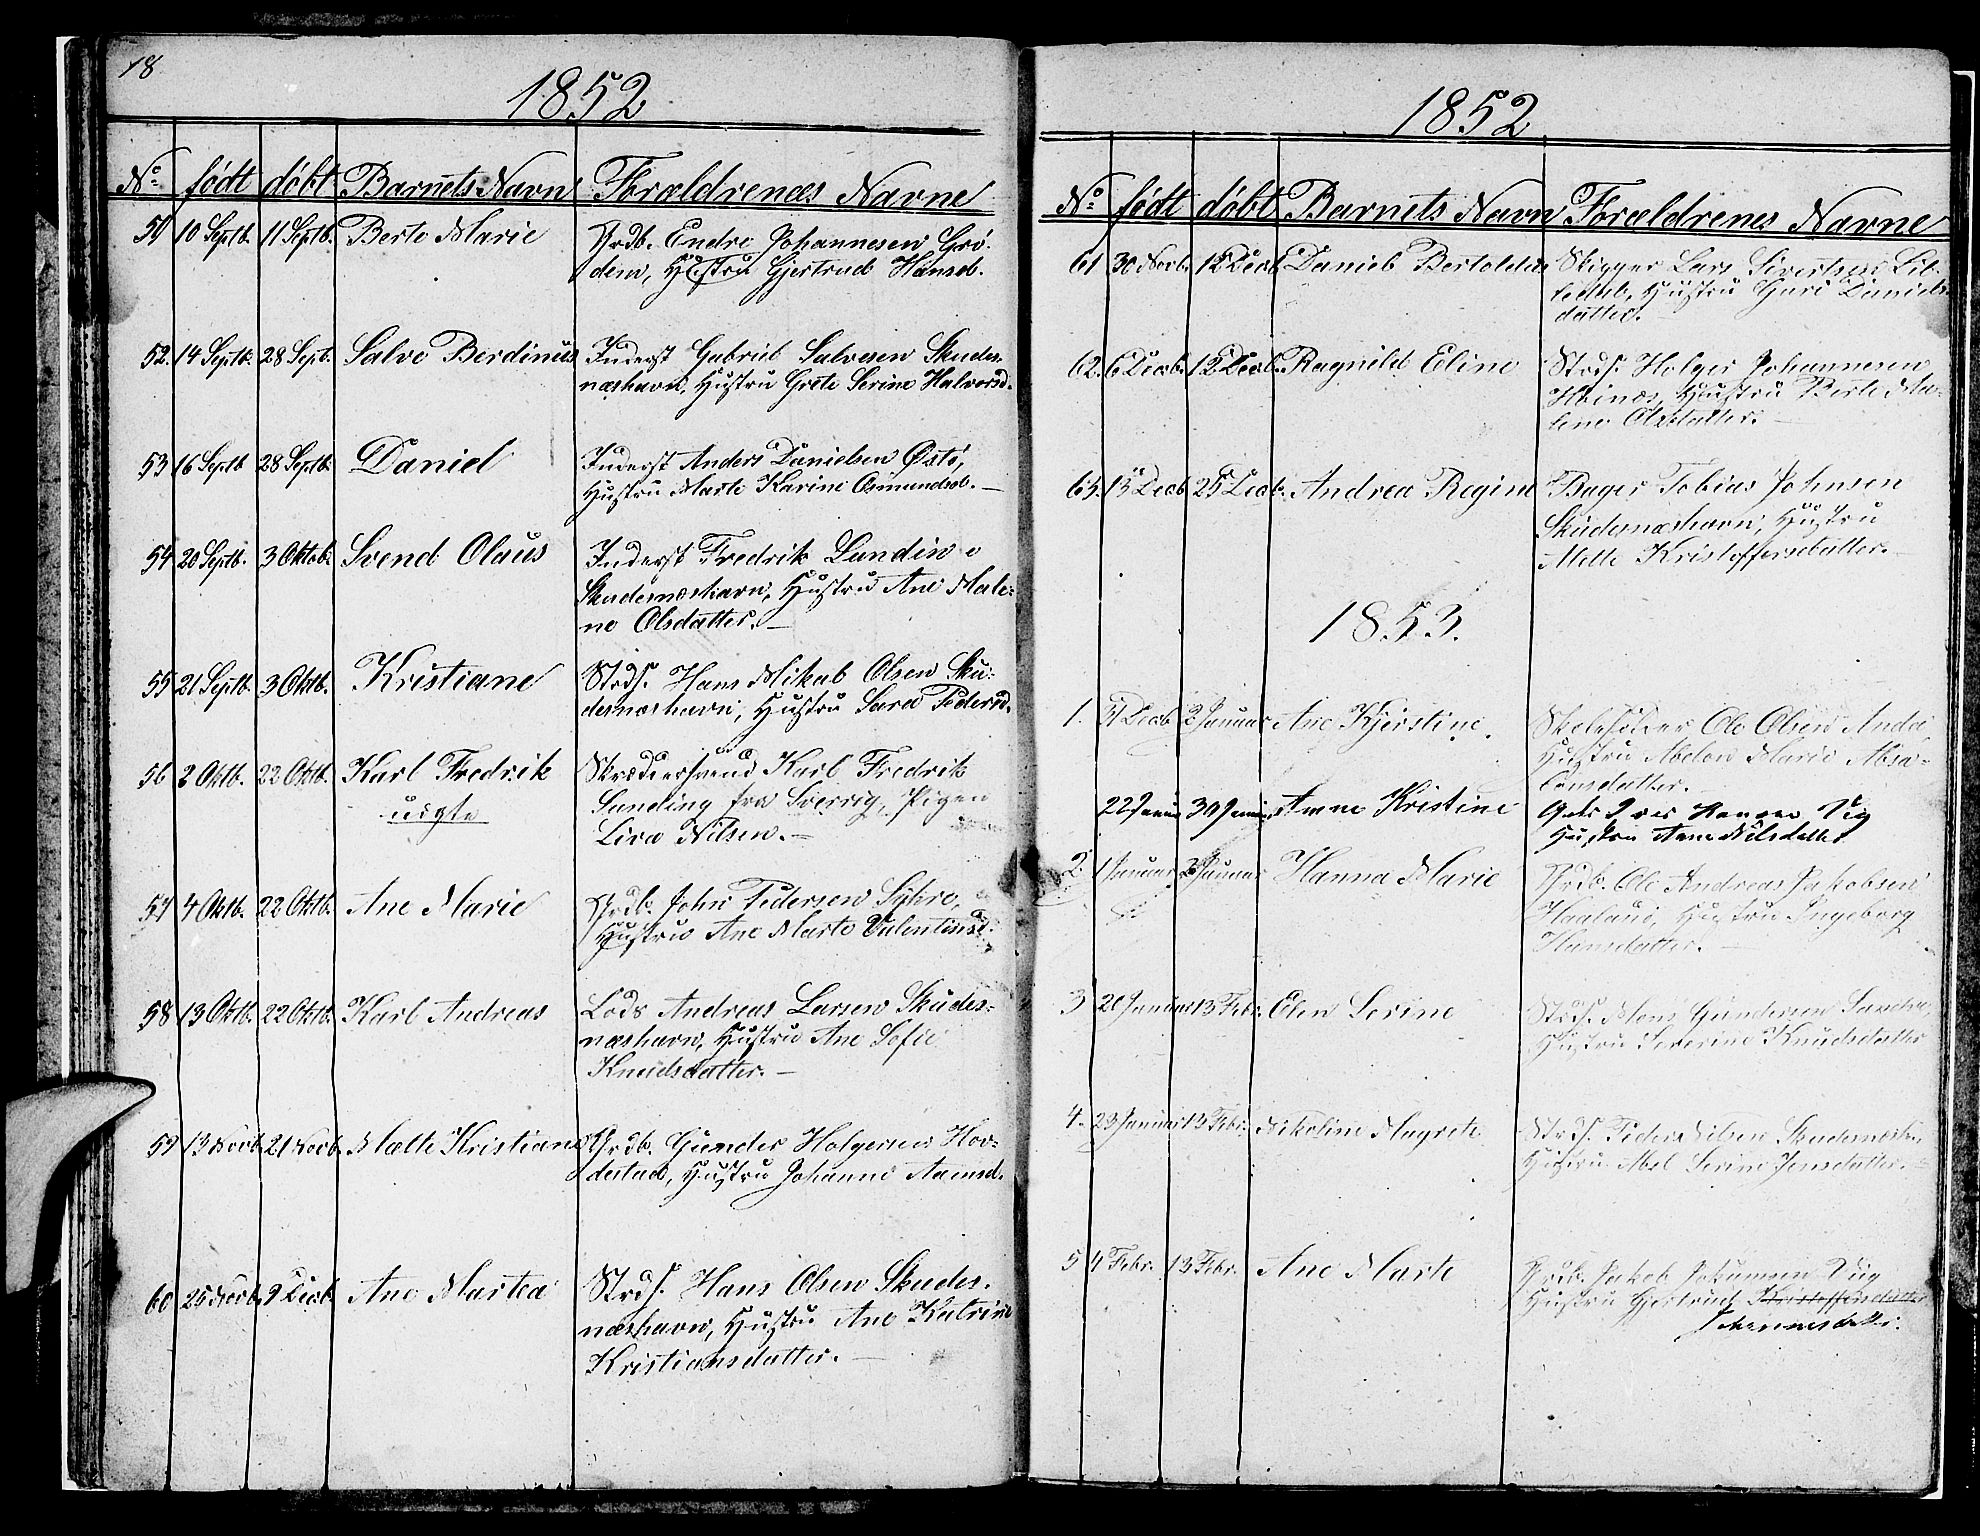 18
1852
No. født døbt Barnets Navn Forældrenes Navne
51 10 Septb. 11 Septb. Berte Marie Grdb. Endre Johannesen Grø-
dem, Hustru Gjertrud Hansd.
52. 14 Septb. 28 Sept. Salve Berdinus Inderst Gabriel Salvesen Skudes-
næshavn, Hustru Grete Serine Halvorsd.
53 16 Septb 28 Septb. Daniel Inderst Anders Danielsen Østø,
Hustru Marte Karine Osmundsd. —
54 20 Septb. 3 Oktob. Svend Olaus Inderst Fredrik Lundin
Skudesnæshavn, Hustru Ane Male-
ne Olsdatter. —
55 21 Septb. 3 Oktb. Kristiane Strds. Hans Mikal Olsen Sku-
desnæshavn, Hustru Sara Pedersd.
56 2 Oktb. 22 Oktb. Karl Fredrik Skrædersvend Karl Fredrik
uægte Sunding fra Sverrig, Pigen
Liva Nilsen. —
57 4 Oktb. 22 Oktb. Ane Marie Grdb. John Pedersen Syhre,
Hustru Ane Marte Valentinsd.
58 13 Oktb. 22 Oktb. Karl Andreas Lods Andreas Larsen Skudes-
næshavn, Hustru Ane Sofie
Knudsdatter. —
59 13 Novb. 21 Novb. Mælte Kristiane Grdb. Gunder Holgersen Hov-
destad, Hustru Johanne Aamsd.
60 25 Novb. 9 Decb. Ane Martea Strds. Hans Olsen Skudes-
næshavn, Hustru Ane Katrine
Kristiansdatter. —
1852
No. født døbt Barnets Navn Forældrenes Navne
61 30 Novb. 12 Decb. Daniel Bertoldus Skipper Lars Sivertsen
Hustru Guri Daniels-
datter.
62. 6 Decb. 12 Decb. Ragnild Eline Strds. Holger Johannesen
Høinæs, Hustru Berte Ma-
lene Olsdatter. —
63. 13 Decb 25 Decb. Andrea Regine Bager Tobias Johnsen
Skudesnæshavn, Hustru
Mette Kristoffersdatter. —
1853.
1. 31 Decb 2 Januar Ane Kjerstine. Skoleholder Ole Olsen
Hustru Abelon Marie Absa-
lonsdatter. —
22 Januar 30 Januar Anne Kristine Hansen Vig
Hustru Anne Nilsdatter
2. 1 Januar 2 Januar Hanna Marie Grdb. Ole Andreas Jakobsen
Haaland, Hustru Ingeborg
Hansdatter. —
3 20 Januar 13 Febr. Elen Serine Strds. Mons Gundersen Sandve,
Hustru Severine Knudsdatter
4. 23 Januar 13 Febr. Nikoline Magrete Strds. Peder Nilsen Skudesnæsh.,
Hustru Abel Serine Jensdatter. —
5 4 Febr. 13 Febr. Ane Marte Grdb. Jakob Johansen Vig
Hustru Gjertrud Kristoffersdatter
Johannesdatter.